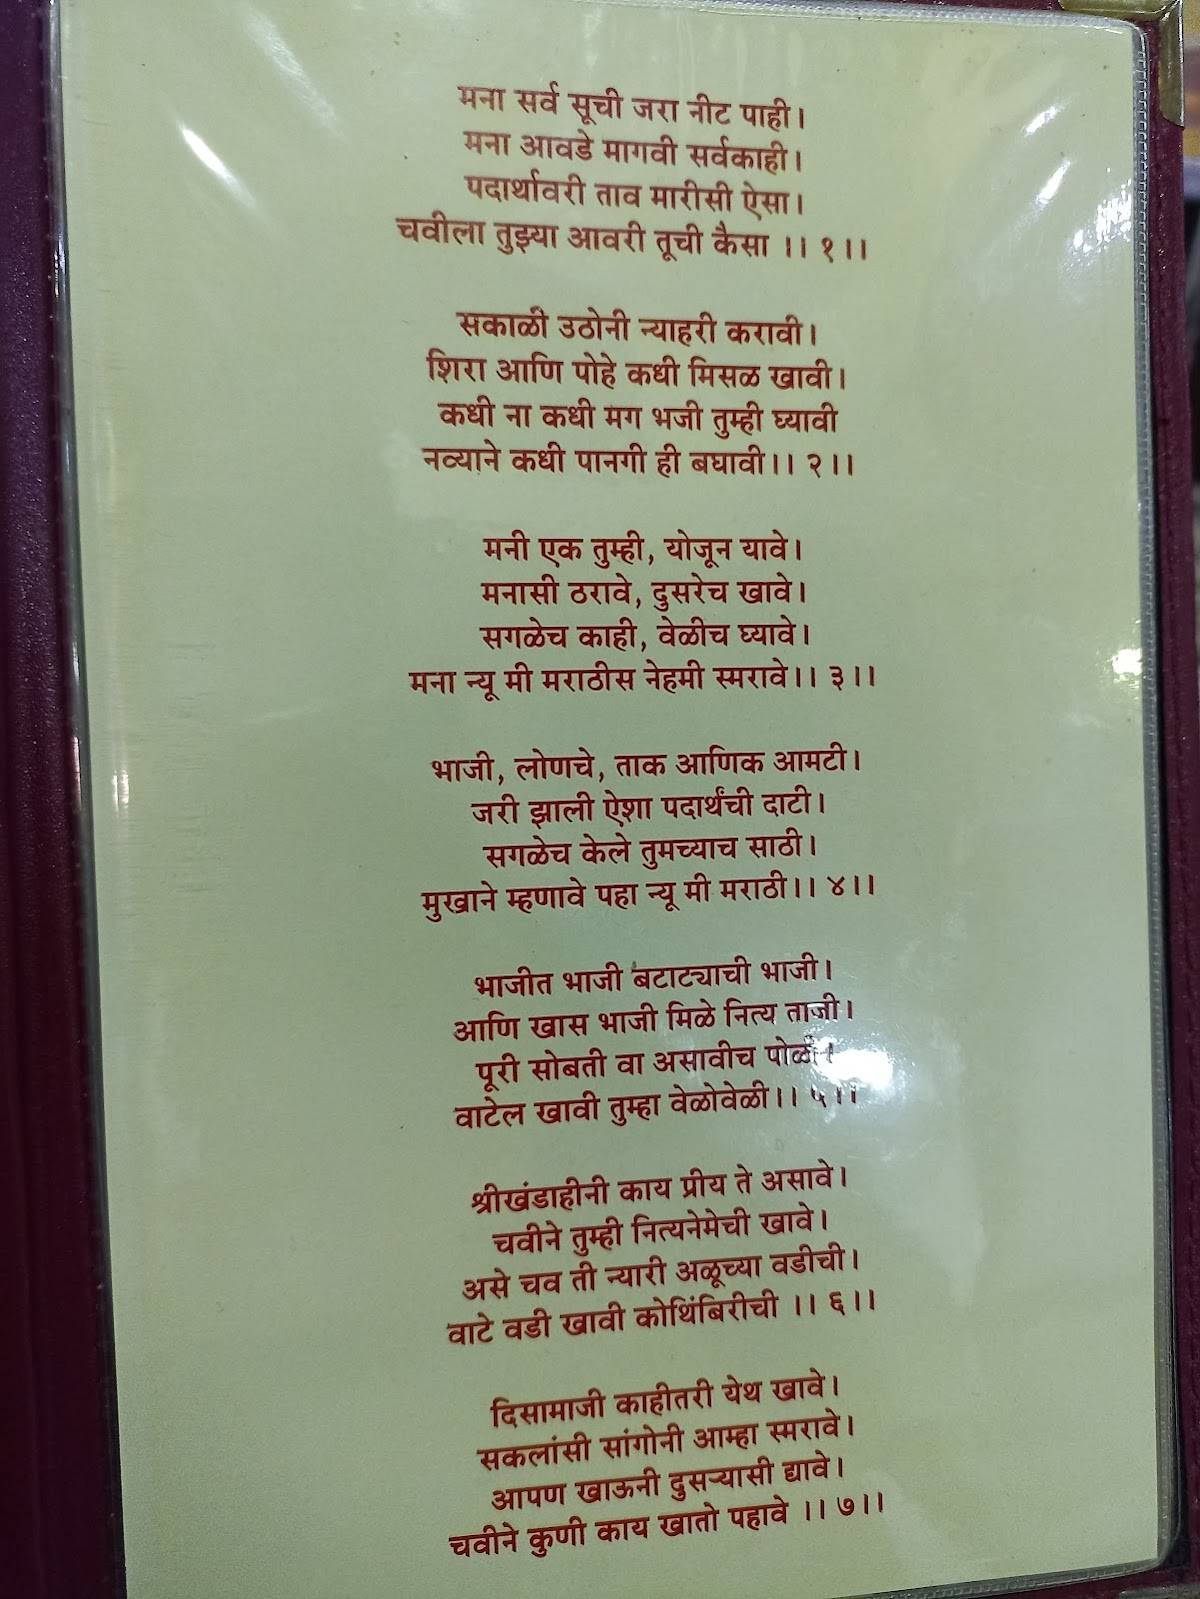 मना सर्व सूची जरा नीट पाही।
मना आवडे मागवी सर्वकाही।
पदार्थावरी ताव मारीसी ऐसा।
चवीला तुझ्या आवरी तूची कैसा ।। १ ।।
सकाळी उठोनी न्याहरी करावी।
शिरा आणि पोहे कधी मिसळ खावी।
कधी ना कधी मग भजी तुम्ही घ्यावी
नव्याने कधी पानगी ही बघावी।। २ ।।
मनी एक तुम्ही, योजून यावे।
मनासी ठरावे, दुसरेच खावे।
सगळेच काही, वेळीच घ्यावे।
मना न्यू मी मराठीस नेहमी स्मरावे।। ३ ।।
भाजी, लोणचे, ताक आणिक आमटी।
जरी झाली ऐशा पदार्थंची दाटी।
सगळेच केले तुमच्याच साठी।
मुखाने म्हणावे पहा न्यू मी मराठी।। ४ ।।
भाजीत भाजी बटाट्याची भाजी।
आणि खास भाजी मिळे नित्य ताजी।
पूरी सोबती वा असावीच पोळी।
वाटेल खावी तुम्हा वेळोवेळी।। ५ ।।
श्रीखंडाहीनी काय प्रीय ते असावे।
चवीने तुम्ही नित्यनेमेची खावे।
असे चव ती न्यारी अळूच्या वडीची।
वाटे वडी खावी कोथिंबिरीची ।। ६ ।।
दिसामाजी काहीतरी येथ खावे।
सकलांसी सांगोनी आम्हा स्मरावे।
आपण खाऊनी दुसऱ्यासी द्यावे।
चवीने कुणी काय खातो पहावे ।। ७ ।।